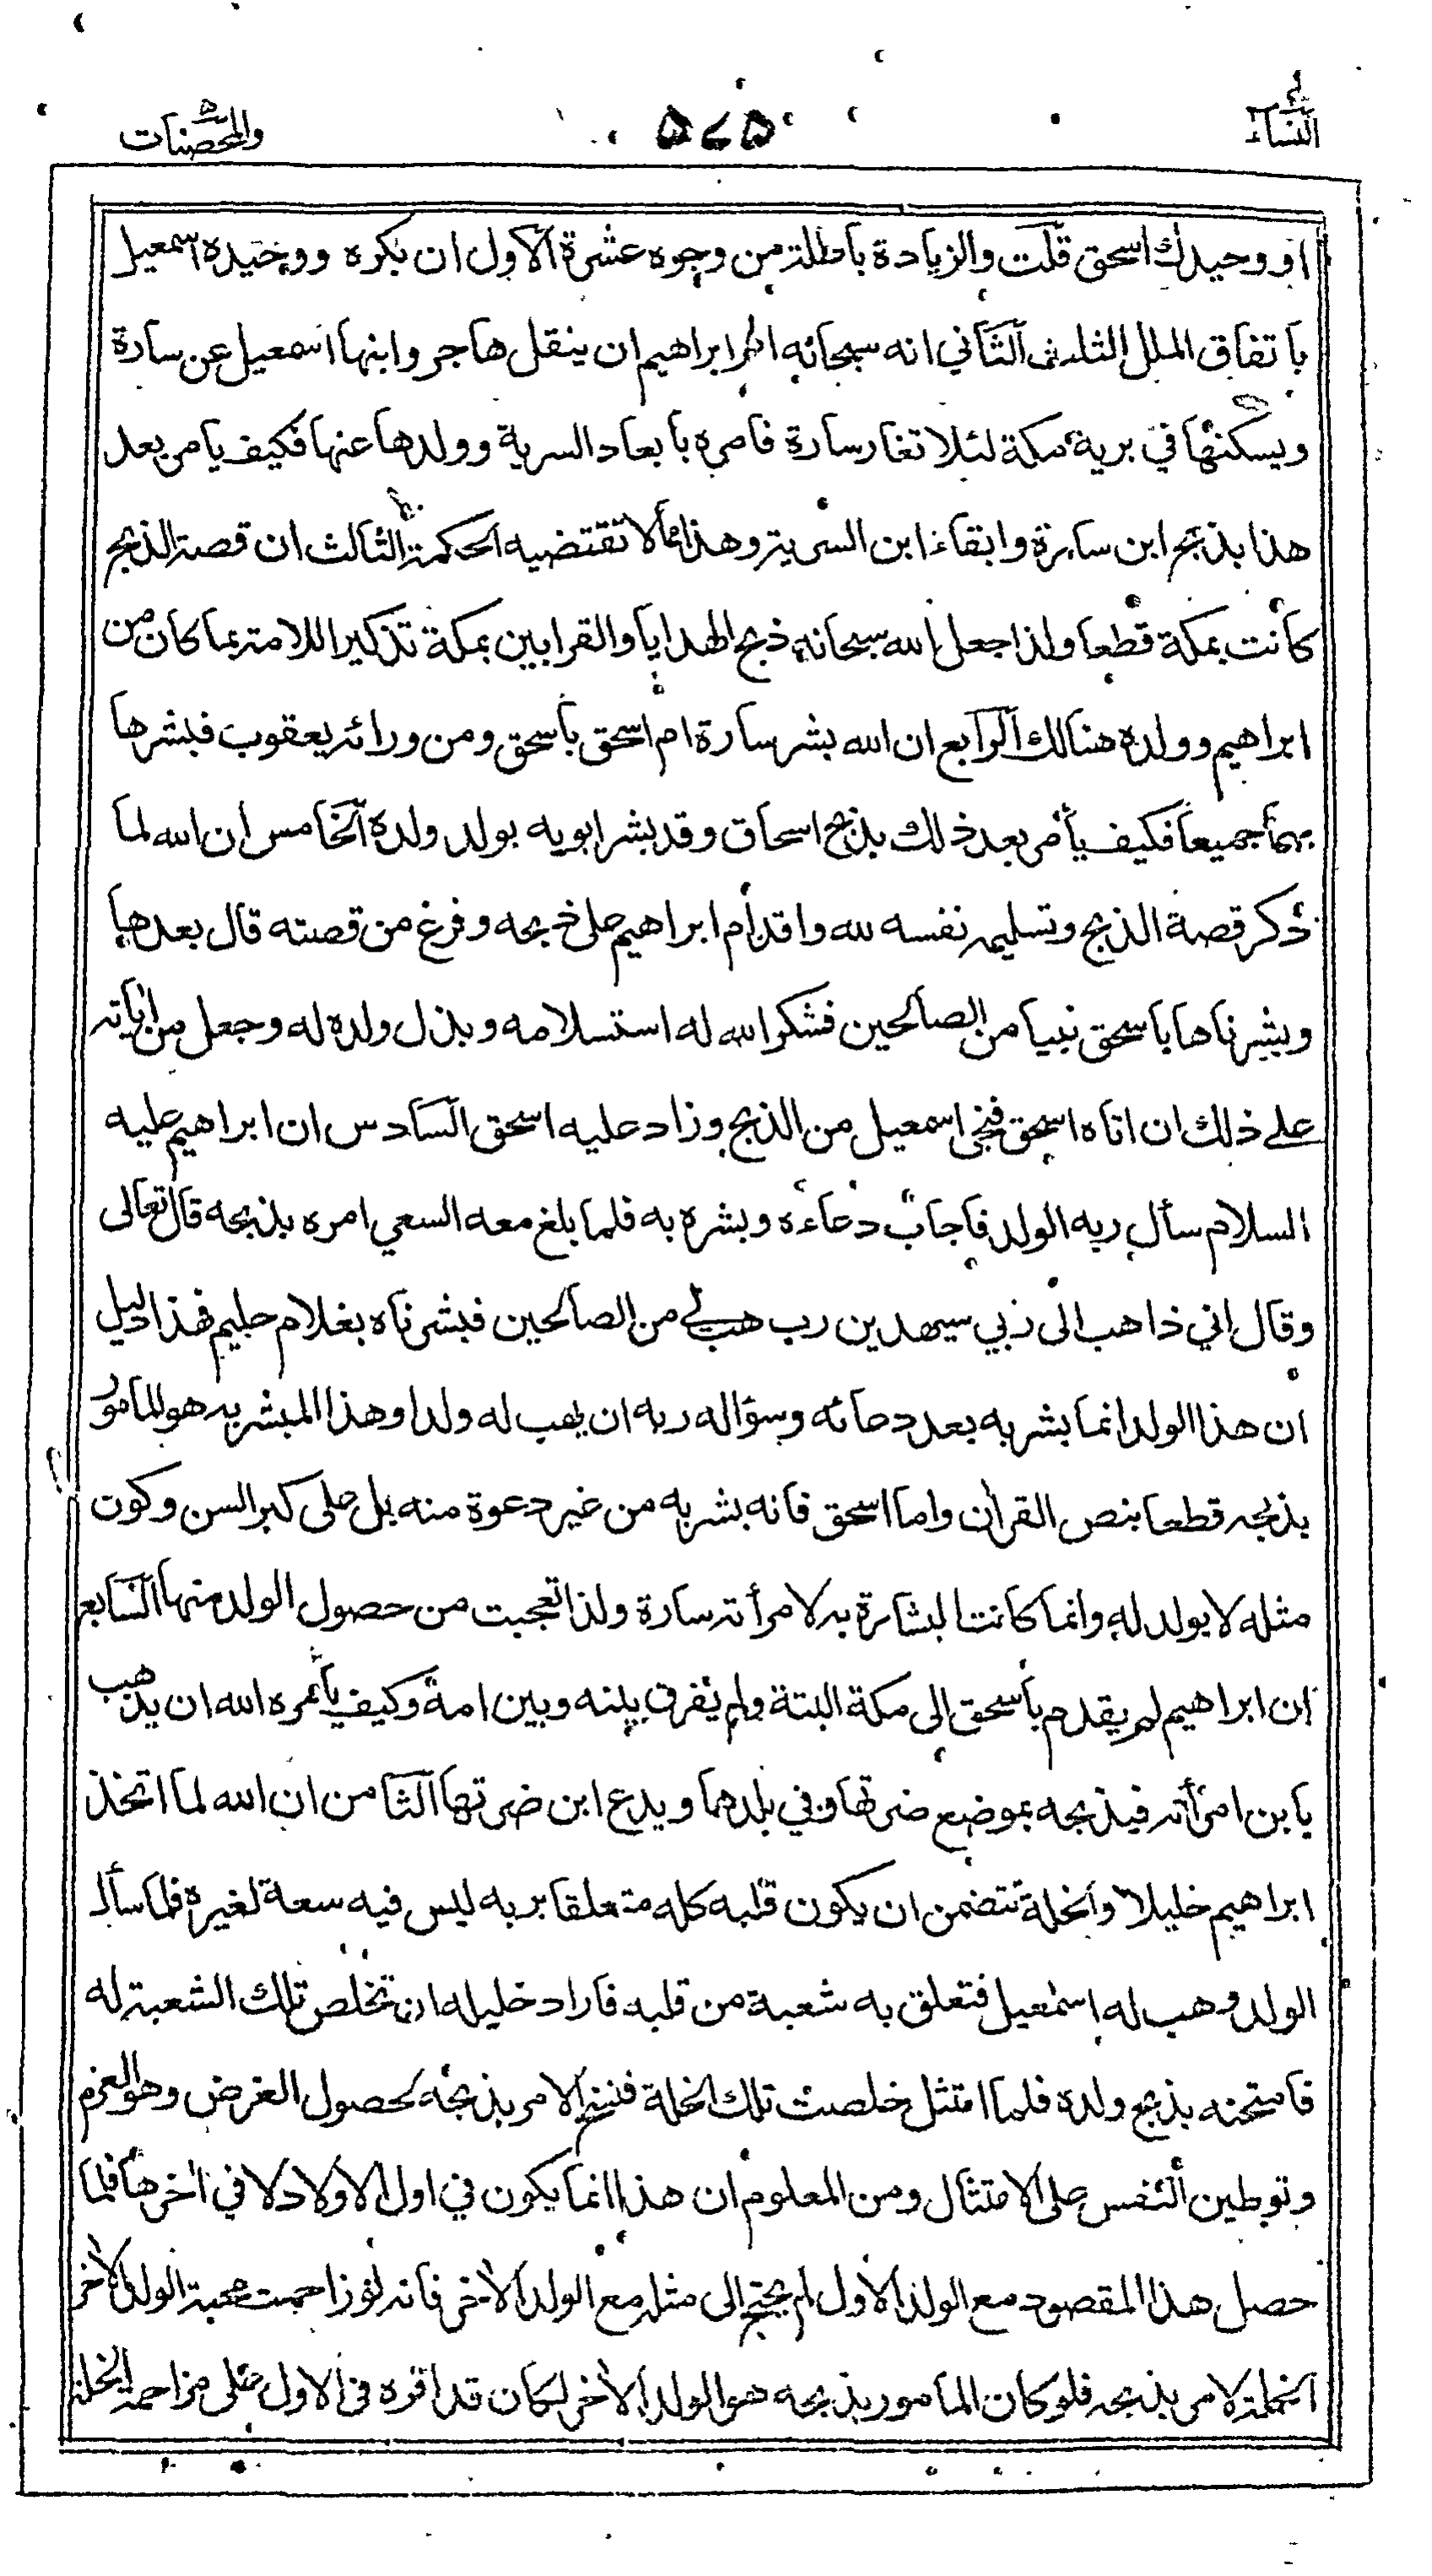 النساء ٤
٥٧٥
والمحصنات ٥
او وحيدك اسحق قلت والزيادة باطلة من وجوه عشرة الاول ان بكره ووحيده اسمعيل
باتفاق الملل الثلث الثاني انه سبحانه امر ابراهيم ان ينقل هاجر وابنها اسمعيل عن سارة
ويسكنها في برية مكة لئلا تغار سارة فامره بابعاد السرية وولدها عنها فكيف يامر بعد
هذا بذبح ابن سارة وابقاء ابن السرية وهذا مما لا تقتضيه الحكمة الثالث ان قصة الذبح
كانت بمكة قطعا ولذا جعل الله سبحانه ذبح الهدايا والقرابين بمكة تذكيرا للامة بما كان من
ابراهيم وولده هنالك الرابع ان الله بشر سارة ام اسحق باسحق ومن ورائه يعقوب فبشرها
بهما جميعا فكيف يأمر بعد ذلك بذبح اسحاق وقد بشر ابويه بولد ولده الخامس ان الله لما
ذكر قصة الذبح وتسليمه نفسه لله واقدام ابراهيم على ذبحه وفرغ من قصته قال بعدها
وبشرناها باسحق نبيا من الصالحين فشكر الله له استسلامه وبذل ولده له وجعل من اثابته
على ذلك ان اتاه اسحق فنجى اسمعيل من الذبح وزاد عليه اسحق السادس ان ابراهيم عليه
السلام سأل ربه الولد فاجاب دعاءه وبشره به فلما بلغ معه السعي امره بذبحه قال تعالى
وقال اني ذاهب الى ربي سيهدين رب هب لي من الصالحين فبشرناه بغلام حليم فهذا دليل
ان هذا الولد انما بشر به بعد دعائه وسؤاله ربه ان يهب له ولدا وهذا المبشر به هو المامور
بذبحه قطعا بنص القرآن واما اسحق فانه بشر به من غير دعوة منه بل على كبر السن وكون
مثله لا يولد له وانما كانت البشارة به لامرأته سارة ولذا تعجبت من حصول الولد منها السابع
ان ابراهيم لم يقدم باسحق الى مكة البتة ولم يفرق بينه وبين امه وكيف يأمره الله ان يذهب
بابن امرأته فيذبحه بموضع ضرتها وفي بلدها ويدع ابن ضرتها الثامن ان الله لما اتخذ
ابراهيم خليلا والخلة تتضمن ان يكون قلبه كله متعلقا بربه ليس فيه سعة لغيره فلما سأل
الولد وهب له اسمعيل فتعلق به شعبة من قلبه فاراد خليله ان تخلص تلك الشعبة له
فامتحنه بذبح ولده فلما امتثل خلصت تلك الخلة فنسخ الامر بذبحه لحصول الغرض وهو العزم
وتوطين النفس على الامتثال ومن المعلوم ان هذا انما يكون في اول الاولاد لا في آخرها فلما
حصل هذا المقصود مع الولد الاول لم يحتج الى مثله مع الولد الآخر فانه لو زاحمت محبة الولد الآخر
الخلة لامر بذبحه فلو كان المامور بذبحه هو الولد الآخر لكان قد اقره في الاول على مزاحمة الخلة